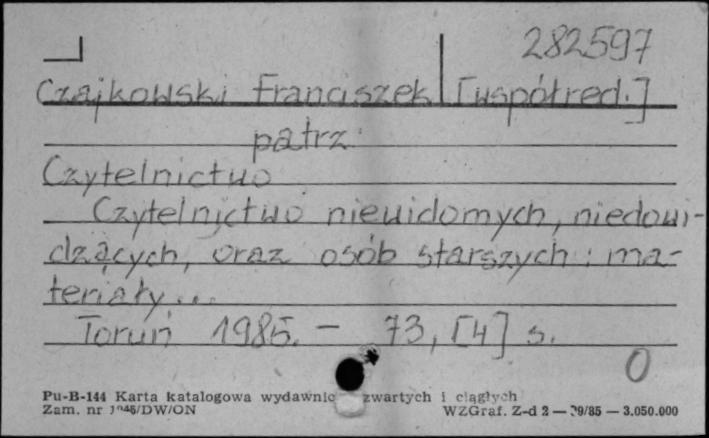 282597
Czajkowski Franciszek [współred.]
patrz:
Czytelnictwo
Czytelnictwo niewidomych, niedowi-
dzących, oraz osób starszych : ma-
teriały...
Toruń 1985. - 73, [4] s.
0
Pu-B-144 Karta katalogowa wydawnic zwartych i ciągłych
Zam. nr /DW/ON WZGraf. Z-d 2 — 9/85 — 3.050.000